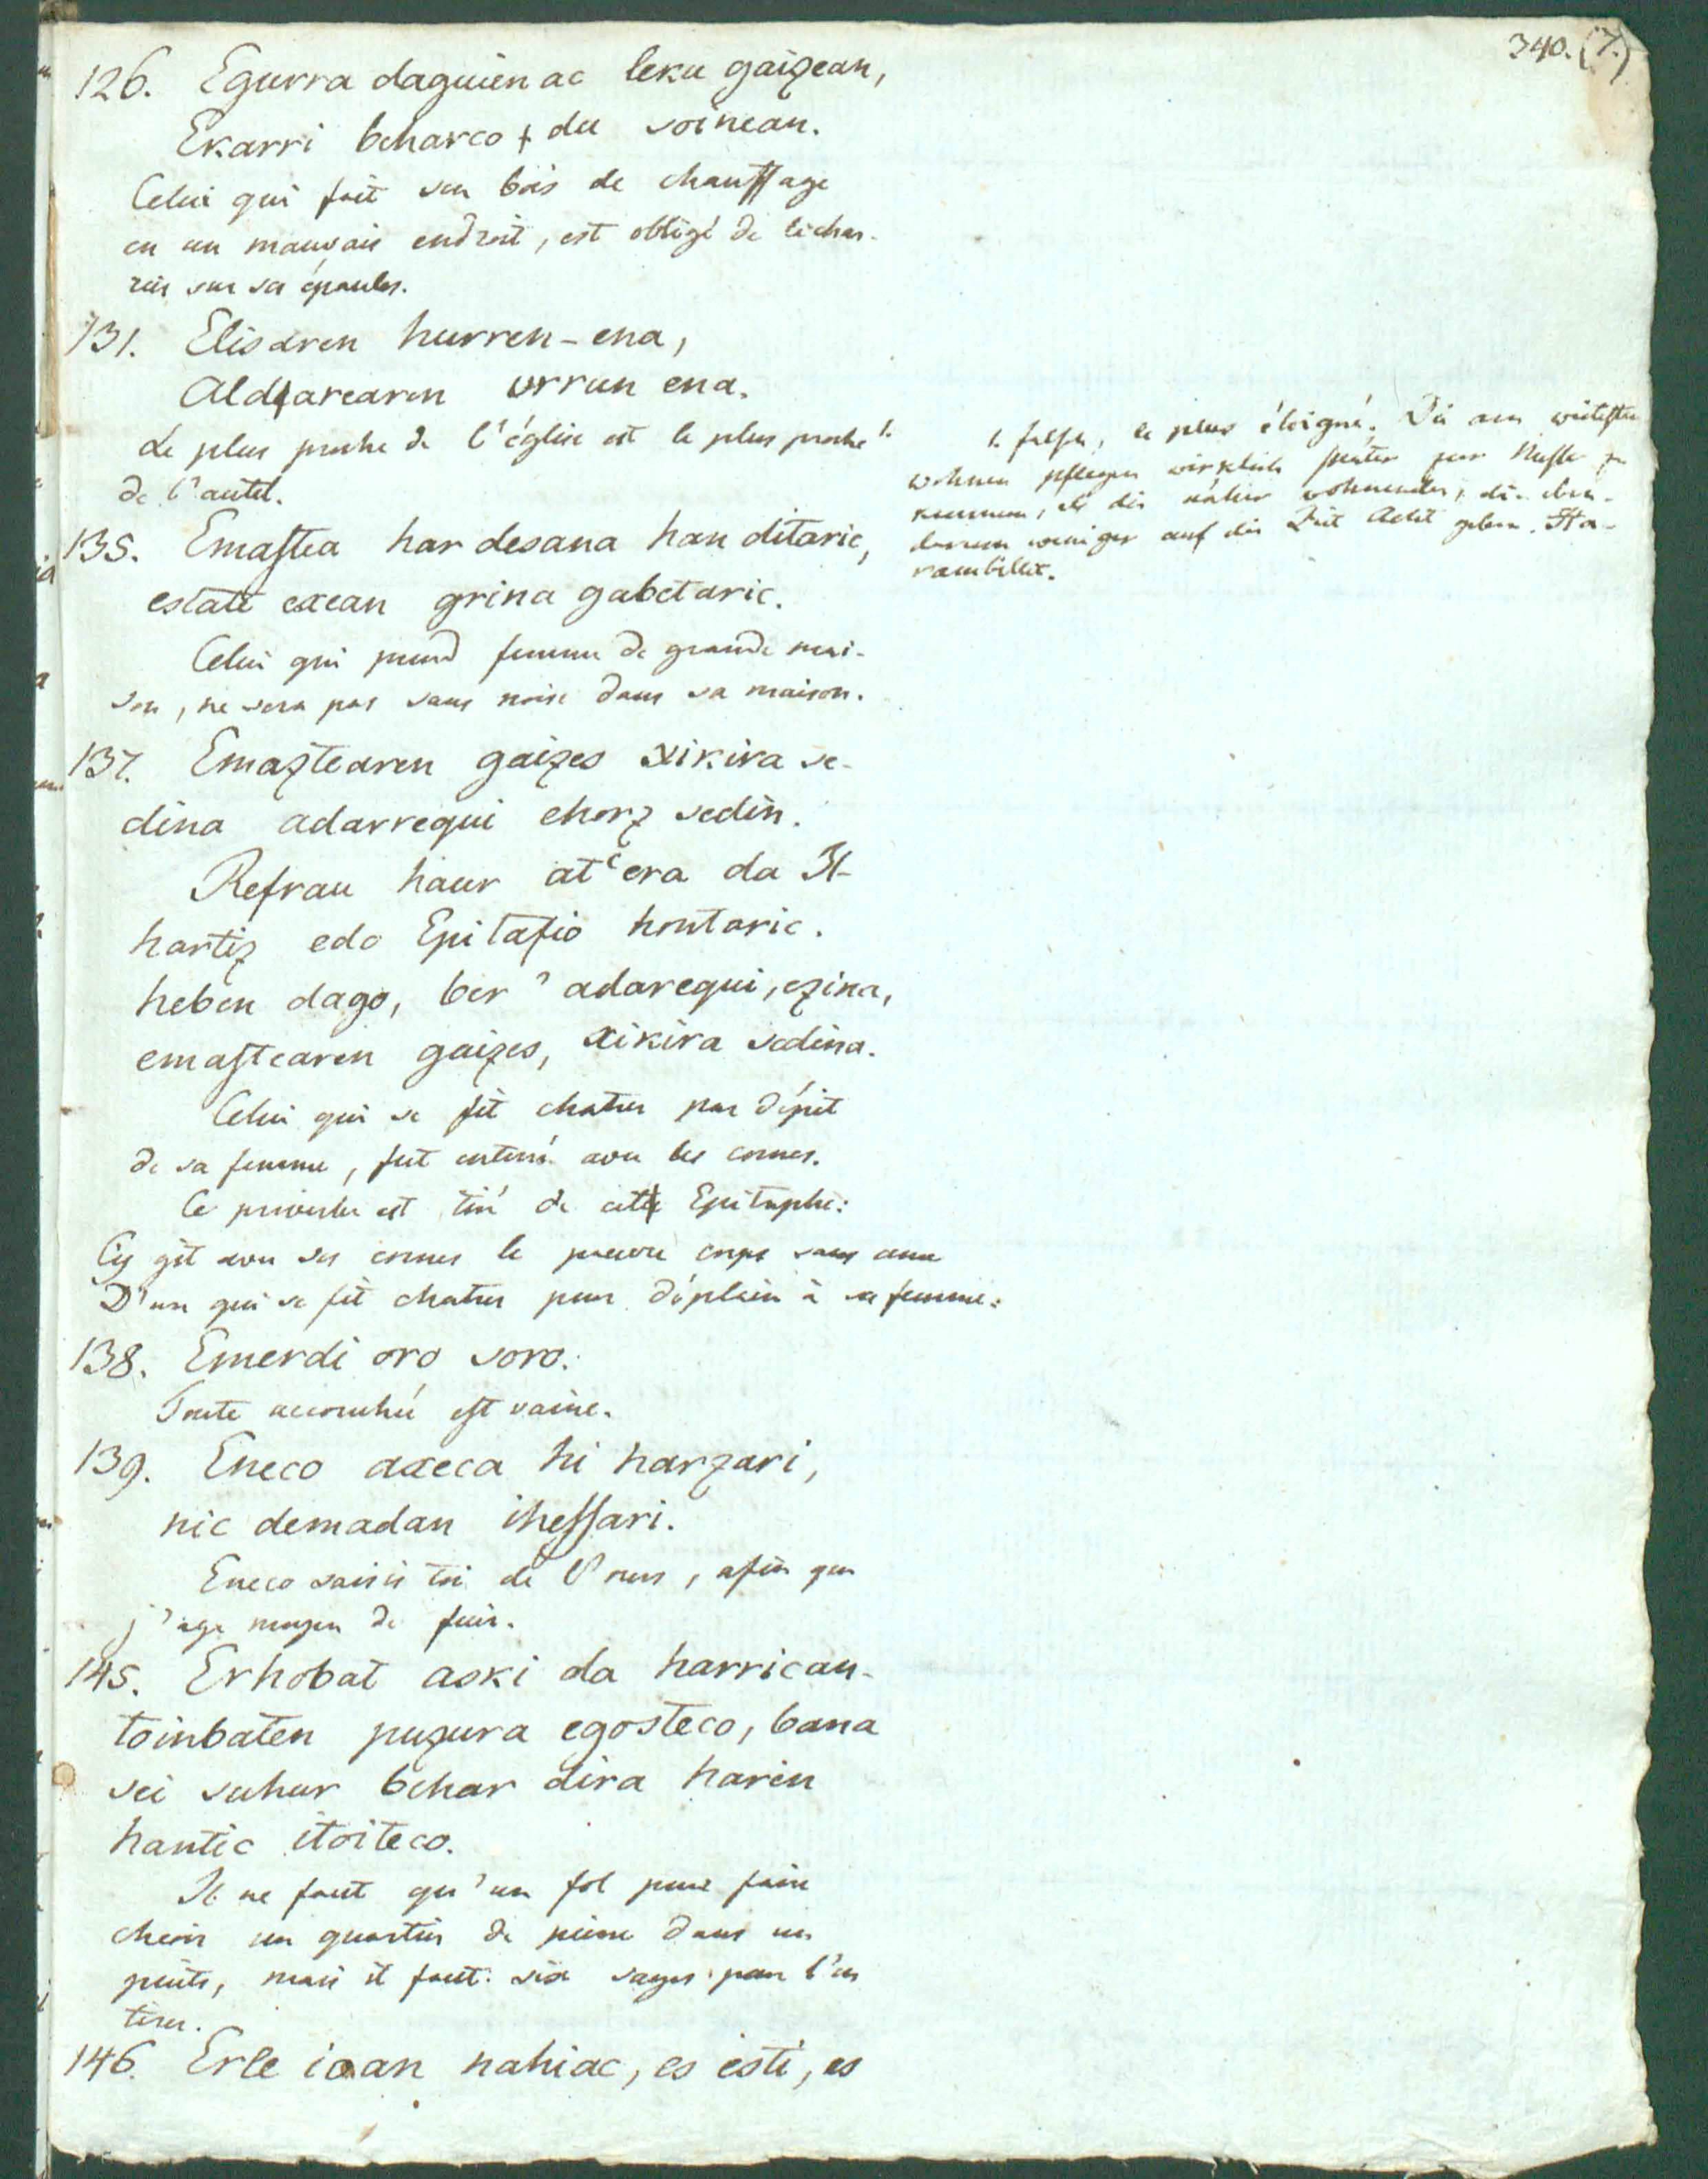 340. (7.)
126. Egurra daguienac leku gaizean,
Ekarri beharco du soinean.
Celui qui fait son bois de chauffage
en un mauvais endroit, est obligé de l'echar-
rier sur ses épaules.
131. Elisaren hurren-ena,
Aldarearen urrun ena.
Le plus proche de l'église est le plus proche 1.
de l'autel.
1. falsch, le plus éloigné. Die am weitesten
wohnen pflegen wirklich später zur Messe zu
kommen, als die näher wohnenden, die eben
darum weniger auf die Zeit Acht geben. Ha-
rambillet.
135. Emaſtea har desana han ditaric,
estate exean grina gabetaric.
Celui qui prend femme de grande mai-
son, ne sera pas sans noise dans sa maison.
137. Emaztearen gaizes xikira se-
dina adarrequi ehorz sedin.
Refrau haur at'era da Il-
hartiz edo Epitafio hontaric.
heben dago, ber' adarequi, ezina,
emaſtearen gaizes, xikira sedina.
Celui qui se fit chatrer par dépit
de sa femme, fut enterré avec les cornes.
Ce proverbe est tiré de cette Epitaphe:
Cy git avec ses cornes le pauvre corps sans ame
D'un qui se fit chatrer pour déplaire à sa femme.
138. Emerdi oro soro.
Toute accouchée est vaine.
139. Eneco axeca hi harzari,
nic demadan iheſſari.
Eneco saisis toi de l'ours, afin que
j'aye moyen de fuir.
145. Erhobat aski da harrican-
toinbaten puzura egosteco, bana
sei suhur behar dira haren
hantic itoiteco.
Il ne faut qu'un fol pour faire
cheoir un quartier de pierre dans un
puits, mais il faut six sages pour l'en
tirer.
146. Erle ioan nahiac, es esti, es